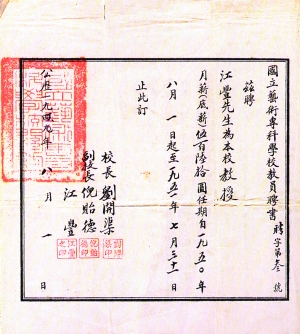 國立藝術專科學校教員聘書 聘字第叁號
茲聘
江豐先生為本校教授
月薪(底薪)伍百陸拾圓任期自一九五〇年
八月一日起至一九五一年七月三十一日
止此訂
校長劉開渠
副校長倪貽德
江豐
公曆一九四九年八月一日